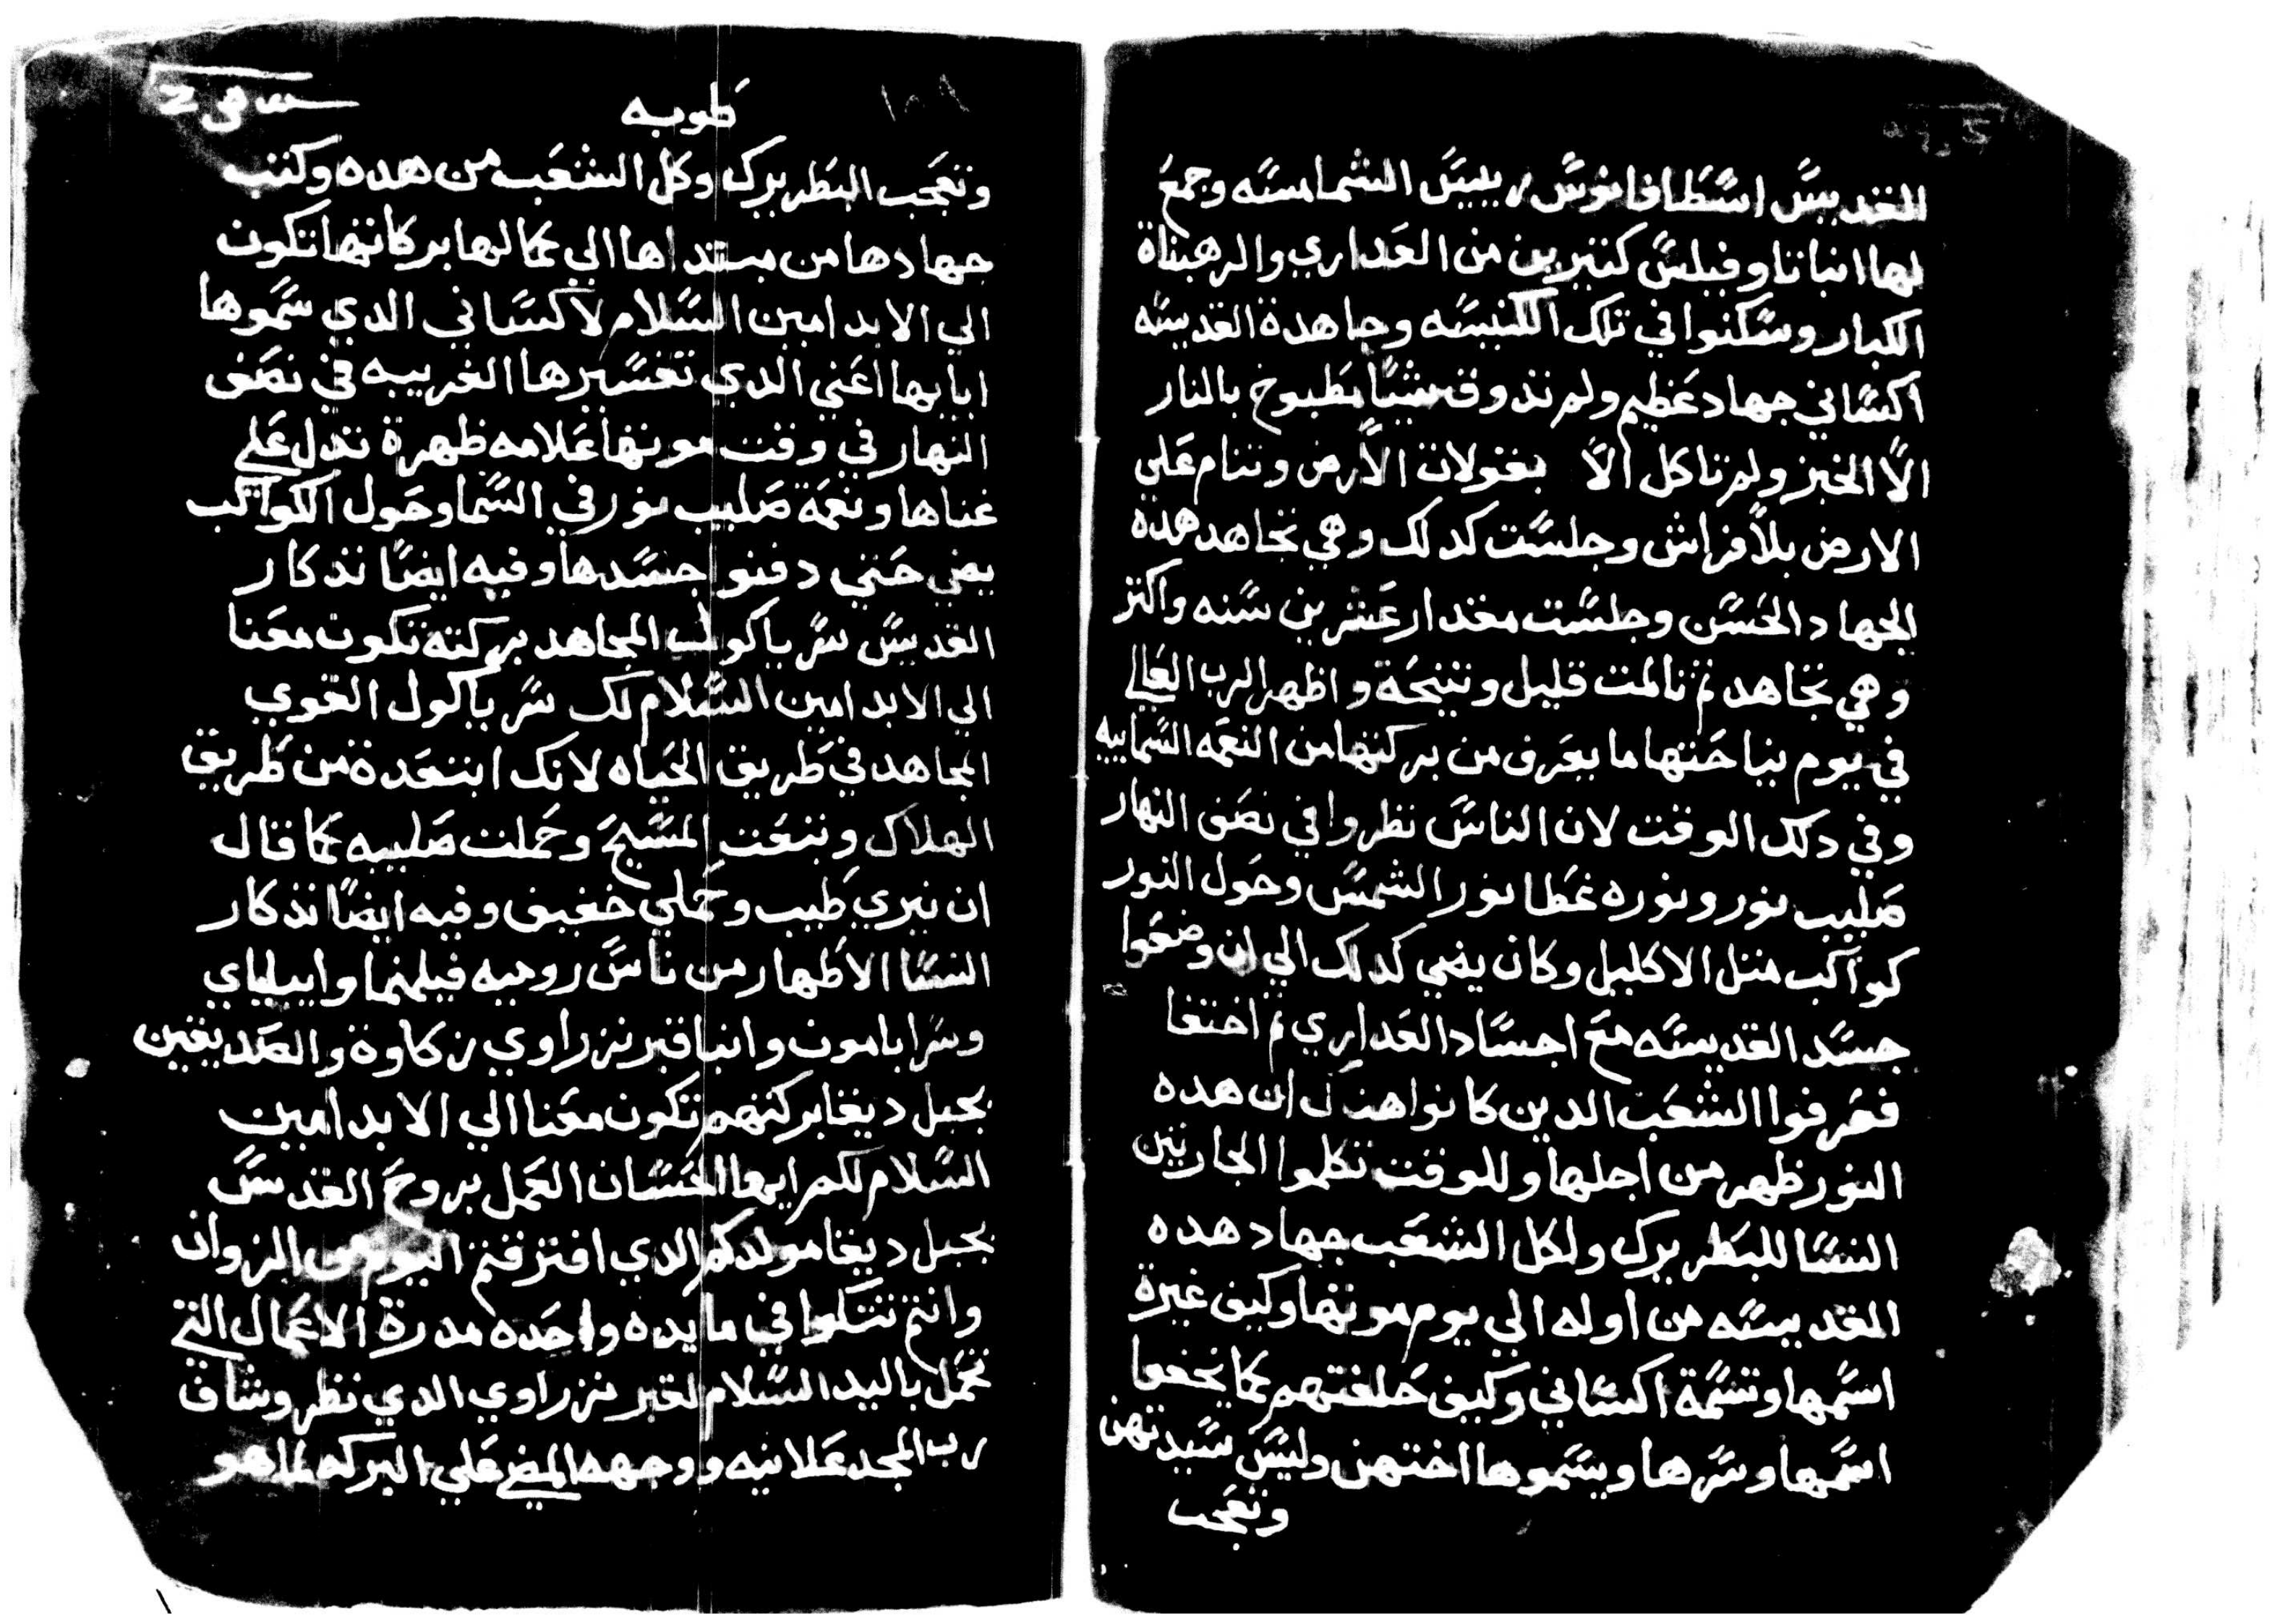 القديس اسطافانوس رييس الشمامسه وجمع
لها انباتنا وفيلس كتيرين من العداري والرهبناة
الكبار وسكنوا في تلك الكنيسه وجاهدة القديسه
اكساني جهاد عظيم ولم تذوق شيا مطبوخ بالنار
الا الخبز ولم تاكل الا بقولات الارض وتنام علي
الارض بلا فراش وجلست كدلك وهي تجاهد هده
الجهاد الحسن وجلست مقدار عشرين سنه واكتر
وهي تجاهد تم تالمت قليل وتنيحة واظهر الرب العالي
في يوم نياحتها ما يعرف من بركتها من النعمه السماييه
وفي دلك الوقت لان الناس نظروا في نصف النهار
صليب نور ونوره غطا نور الشمس وحول النور
كواكب متل الاكليل وكان يضي كدلك الي ان وضعوا
جسد القديسه مع اجساد العداري تم اختفا
فعرفوا الشعب الدين كانوا هناك ان هده
النور ظهر من اجلها وللوقت تكلموا الجاريتين
النسا للبطريرك ولكل الشعب جهاد هده
القديسه من اوله الي يوم موتها وكيف غيرة
اسمها وتسمة اكساني وكيف حلفتهم كما يخفوا
اسمها وسرها ويسموها اختهن وليس سيدتهن
وتعجب
طوبه
١٠٩
وتعجب البطريرك وكل الشعب من هده وكتب
جهادها من مبتداها الي كمالها بركاتها تكون
الي الابد امين السلام لاكساني الدي سموها
ابايها اعني الدي تفسيرها الغريبه في نصف
النهار في وقت موتها علامه ظهرة تدل علي
غناها ونعمة صليب نور في السما وحول الكواكب
يضي حتي دفنو جسدها وفيه ايضا تذكار
القديس سرياكوس المجاهد بركته تكون معنا
الي الابد امين السلام لك سرياكول القوي
المجاهد في طريق الحياه لانك ابتعدة من طريق
الهلاك وتبعت المسيح وحملت صليبه كما قال
ان نيري طيب وحملي خفيف وفيه ايضا تذكار
النسا الاطهار من ناس روميه فيلمنما وابيلياي
وسرابامون وانبا قبرنزراوي زكاوة والصديقين
بجبل ديغا بركتهم تكون معنا الي الابد امين
السلام لكم ايها الحسان العمل بروح القدس
بجبل ديغا مولدكم الدي افترقتم اليوم من الزوان
وانتم تتكوا في مايده واحده مدرة الاعمال التي
تحمل باليد السلام لقبرنزراوي الدي نظر وشاف
رب المجد علانيه ووجهه المضي علي البركه لما هو